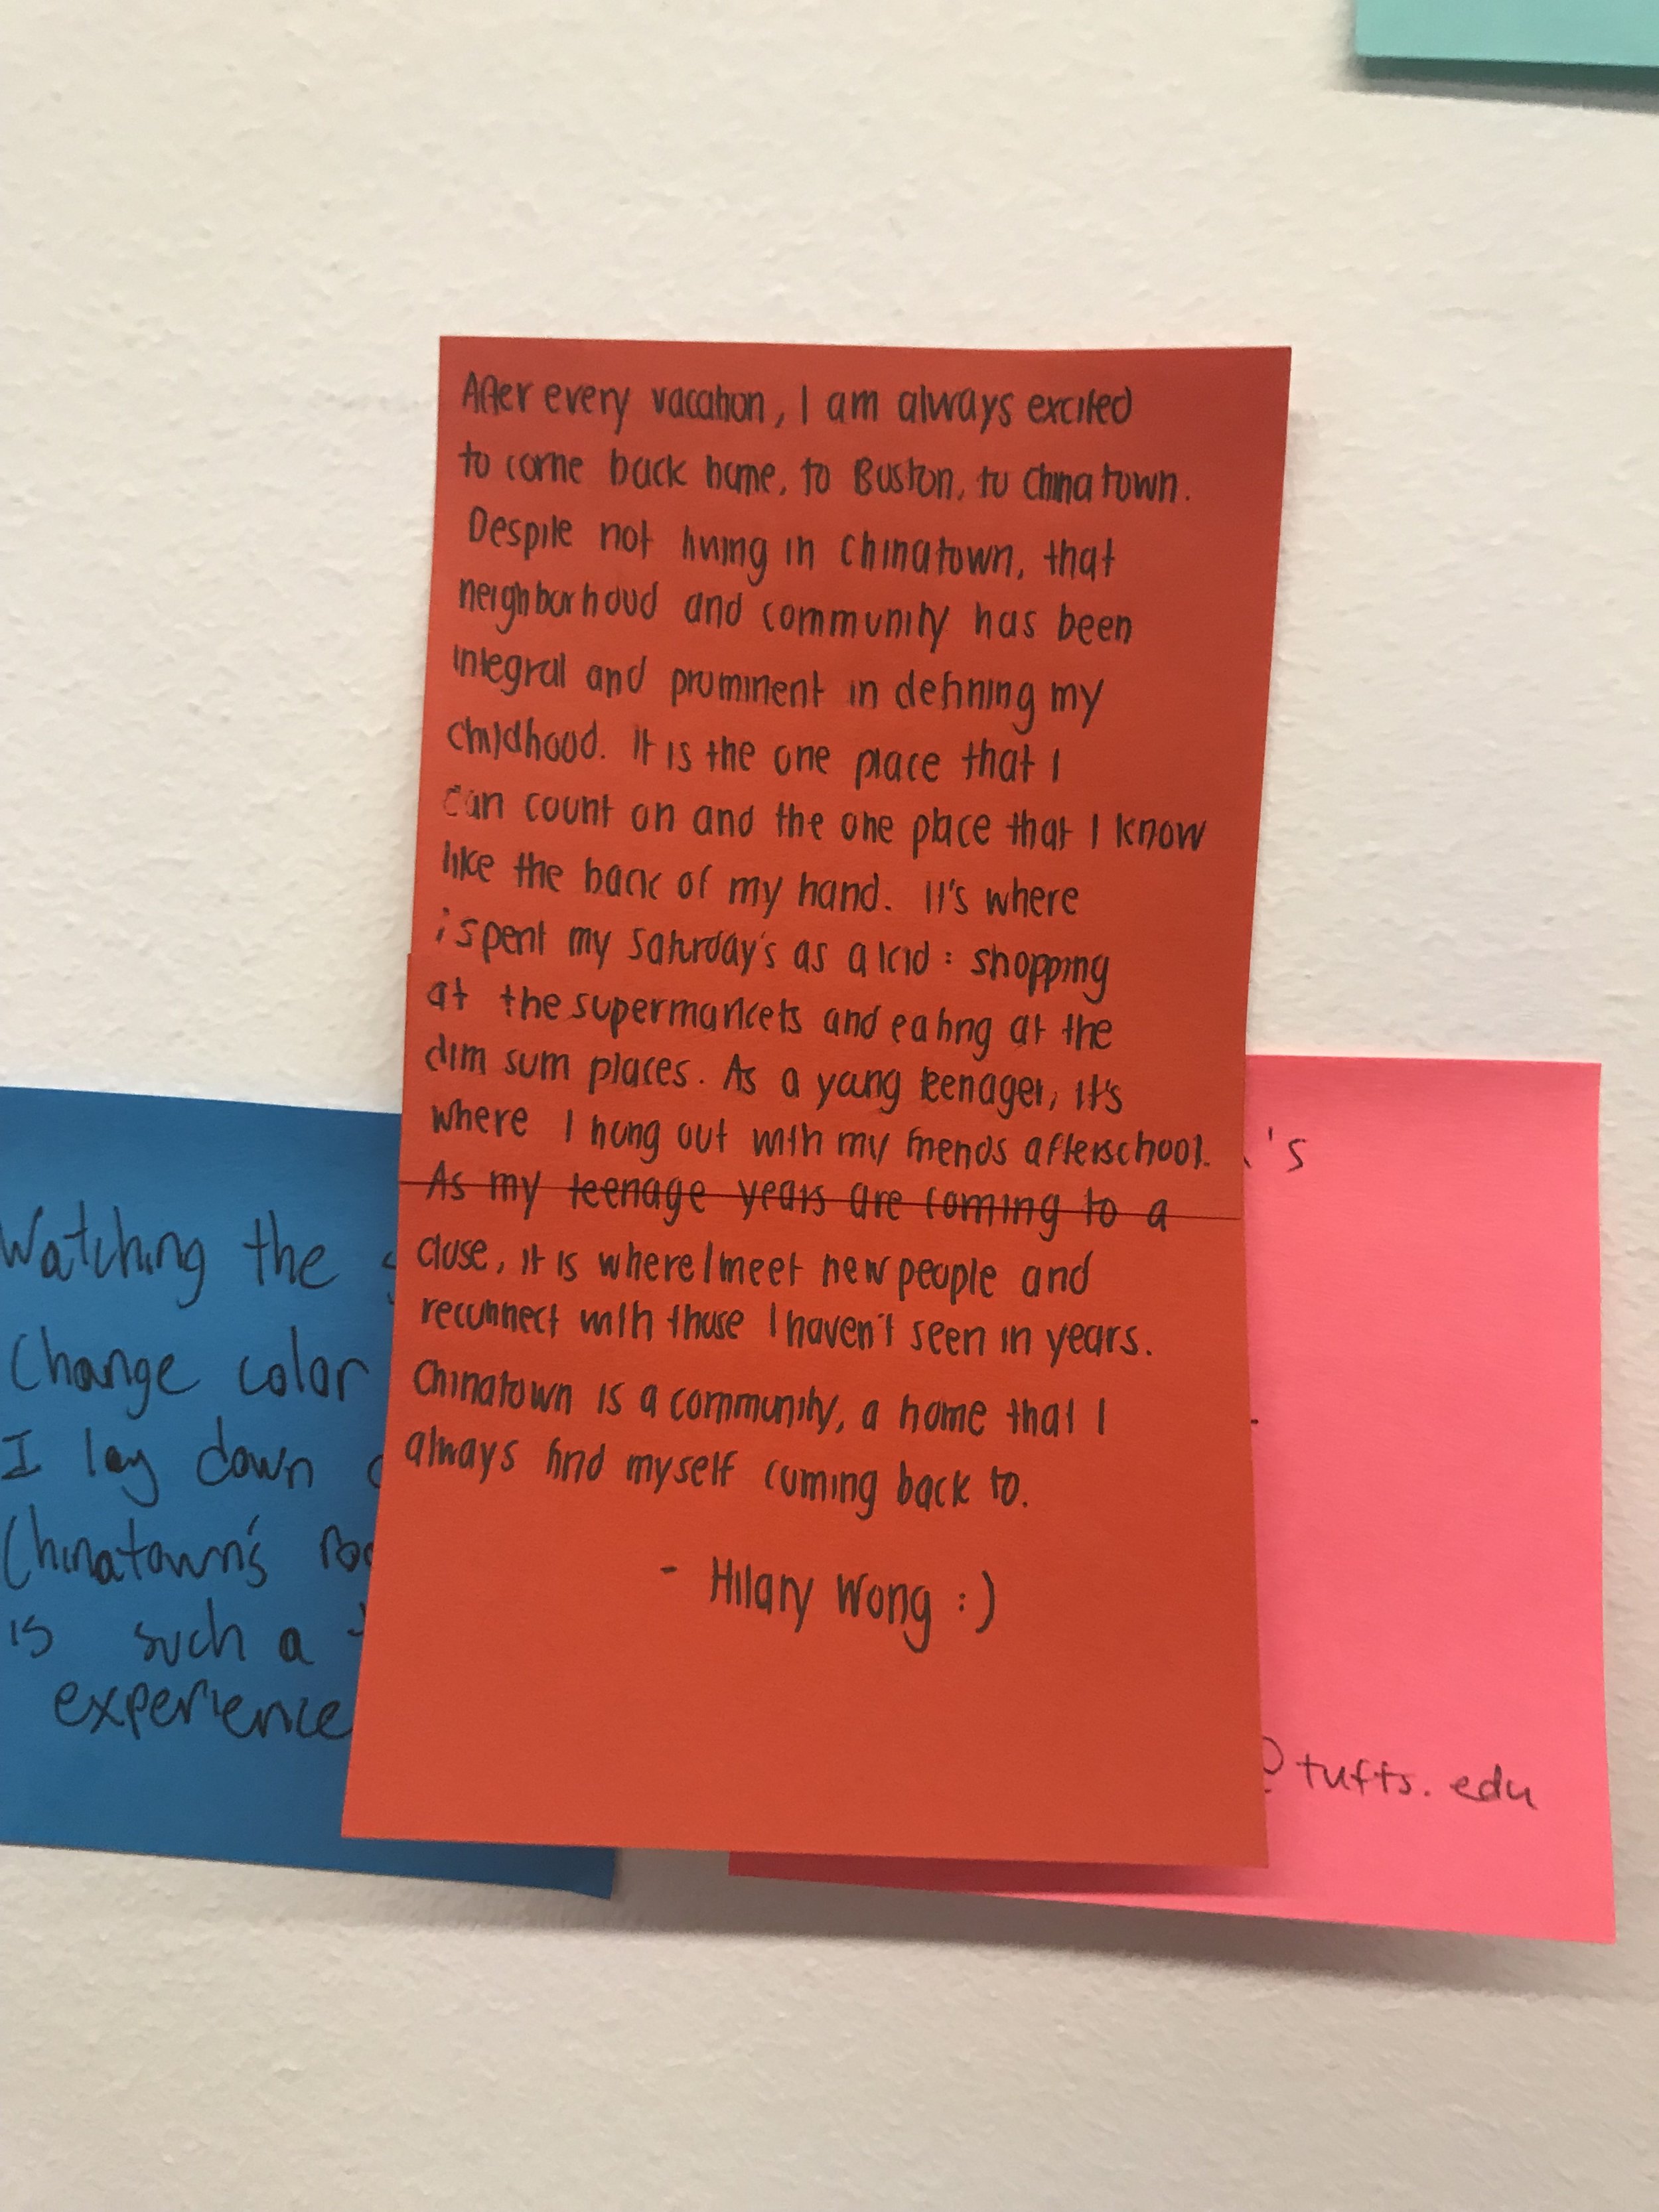 After every vacation, I am always excited
to come back home, to Boston, to Chinatown.
Despite not living in Chinatown, that
neighborhood and community has been
integral and prominent in defining my
childhood. It is the one place that I
can count on and the one place that I know
like the back of my hand. It's where
i spent my Saturday's as a kid: shopping
at the supermarkets and eating at the
dim sum places. As a young teenager, it's
where I hung out with my friends afterschool.
As my teenage years are coming to a
close, it is where I meet new people and
reconnect with those I haven't seen in years.
Chinatown is a community, a home that I
always find myself coming back to.
- Hilary Wong :)
Watching the
Change color
I lay down
Chinatown's
is such a
experience
's
@tufts.edu